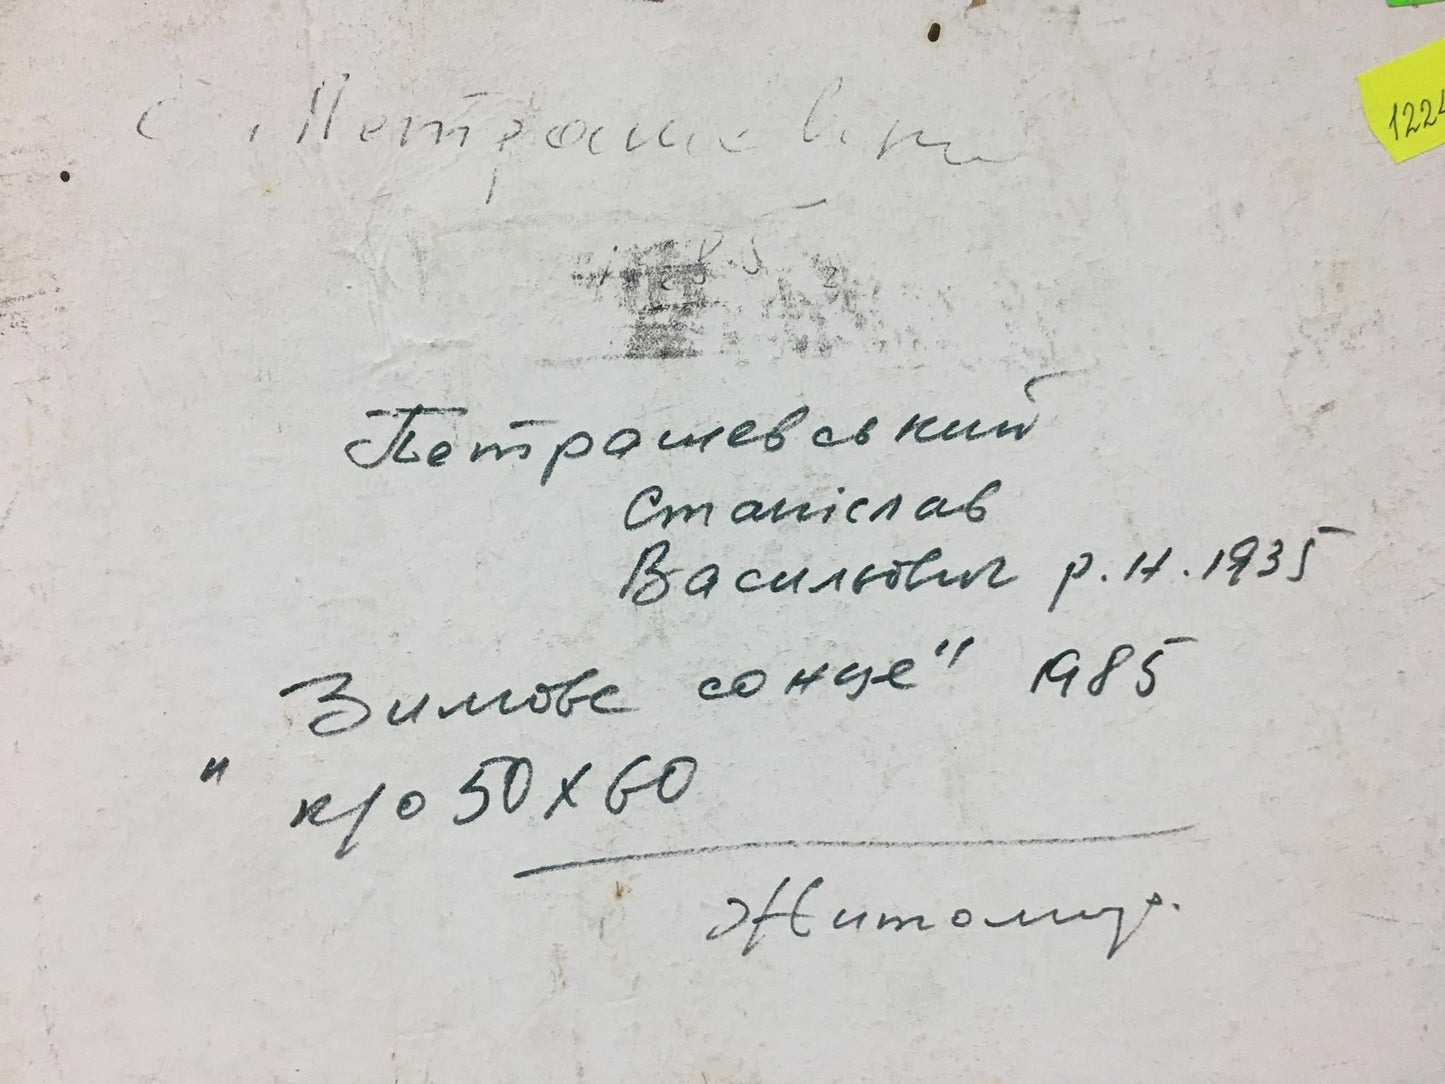 С. Петрашевськ
1985
1224
Петрашевський
Станіслав
Васильович р.н. 1935
"Зимове сонце" 1985
к/о 50х60
Житомир.